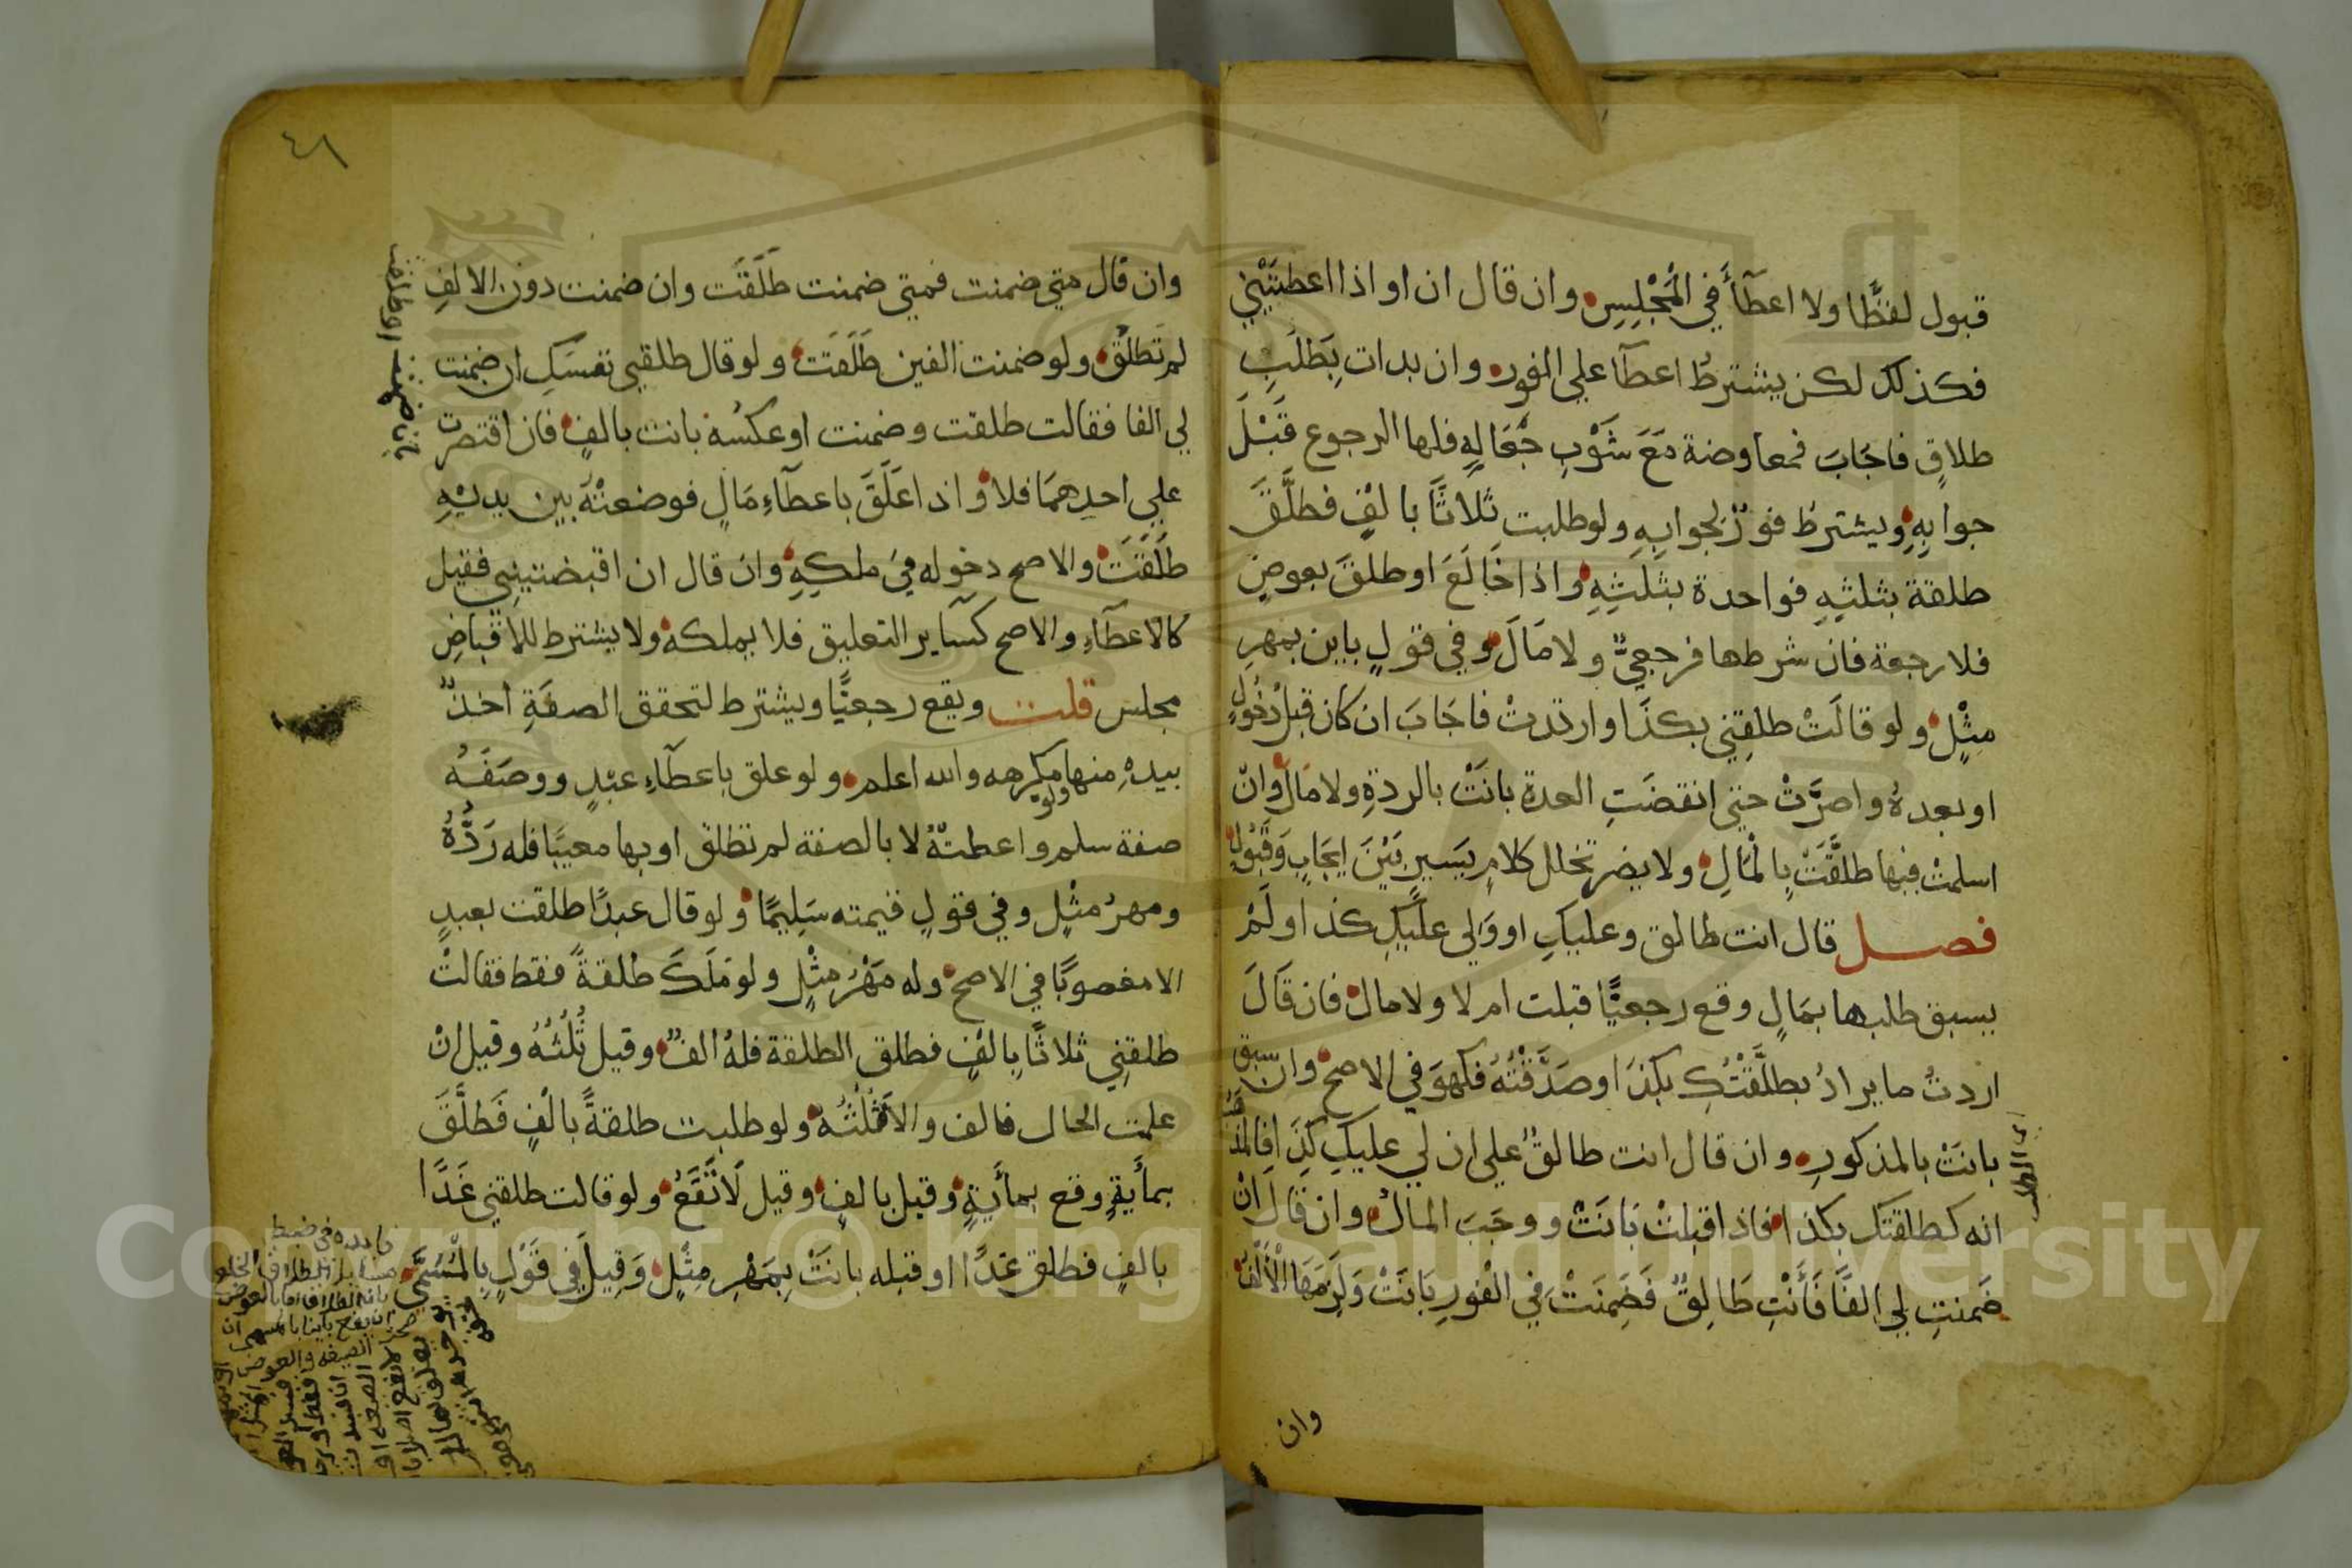 قبول لفظًا ولا اعطآأ في المَجْلِسِ وان قال ان او اذا اعطيتِني
فكذلك لكن يشترطُ اعطآ علي الفور وان بدات بِطَلَبِ
طلاقٍ فاجَابَ فمعاوضة مَعَ شَوْبِ جُعَالةٍ فلها الرجوع قَبْلَ
جوابِهِ ويشترطُ فورٌ لجوابِهِ ولو طلبت ثلاثًا بالفٍ فطلَّقَ
طلقة بثلثِهِ فواحدة بثُلثِهِ واذا خَالَعَ او طلقَ بعوضٍ
فلا رجعة فان شرطها فرجعيٌّ ولا مَالَ وفي قولٍ باين بمهرِ
مِثْلٍ ولو قالَتْ طلقِني بكذَا وارتدتْ فاجَابَ ان كان قبل دخُولٍ
او بعدهُ واصرَّتْ حتي انقضَتِ العدة بانَتْ بالردةِ ولا مَالَ وان
اسلمتْ فيها طلقَتْ بِالمْالِ ولا يضر تخلل كلامٍ يَسيرٍ بَيْنَ ايجَابٍ وَقَبُولٍ
فصل قال انت طالق وعليكِ او وَلي عليكِ كذا ولَمْ
يسبق طلبها بمَالٍ وقع رجعيًّا قبلت ام لا ولا مال فان قَالَ
اردتُ ما يرادُ بطلَّقْتُكِ بكذَا وصَدَّقْتُهُ فكهوَ في الاصح وان سبق
بانَتْ بالمذكورِ وان قال انت طالقٌ علي ان لي عليكِ كذَا فالمذهب
انه كطلقتك بكذا فاذا قبلتْ بَانَتْ ووجَبَ المالُ وان قَالَ انْ
ضَمنتِ لي الفًا فَأَنْتِ طَالِقٌ فَضَمِنَتْ فِي الْفورِ بَانَتْ وَلَزِمَهَا الْأَلْفُ
وان
٤٨
وان قال متي ضمنت فمتي ضمنت طَلَقَت وان ضمنت دون الالفِ
لم تَطلُقْ ولو ضمنت الفين طَلَقَت ولو قال طلقي نفسَكِ ان ضمنت
لي الفا فقالت طلقت وضمنت او عكسُه بانت بالفٍ فان اقتصرت
علي احدِهمَا فلا واذا عَلَّقَ باعطآءِ مَالٍ فوضعتْهُ بين يديْهِ
طَلَقَتْ والاصح دخوله في ملكِهِ وان قال ان اقبضتيني فقيل
كالاعطآءِ والاصح كسَاير التعليق فلا يملكه ولا يشترط للاقباضِ
مجلس قلت ويقع رجعيًّا ويشترط لتحقق الصفَةِ اخذٌ
بيدهِ منها ولو مكرهه والله اعلم ولو علق باعطآءِ عبْدٍ ووصَفَهُ
صفة سلم واعطتهُ لا بالصفة لم تطلق او بها معيبًا فله رَدُّهُ
ومهرُ مثْلٍ وفي قولٍ قيمته سَلِيمًا ولو قال عبدًا طلقت بعبدٍ
الا مغصوبًا في الاصح وله مَهْرُ مِثْلٍ ولو مَلَكَ طلقةً فقط فقالتْ
طلقنِي ثلاثًا بِالْفٍ فطلق الطلقة فلهُ الفٌ وقيل ثُلُثُهُ وقيل انْ
علمت الحال فالف والا فثُلُثُهُ ولو طلبت طلقةً بالْفٍ فَطلَّقَ
بمأيةٍ وقع بمأيةٍ وقيل بالفٍ وقيل لَا تَقَعُ ولو قالت طلقني غَدًا
بالفٍ فطلق غدًا او قبله بانَتْ بِمَهْرِ مِثْلٍ وَقِيلَ فِي قَوْلٍ بِالْمُسَمَّي